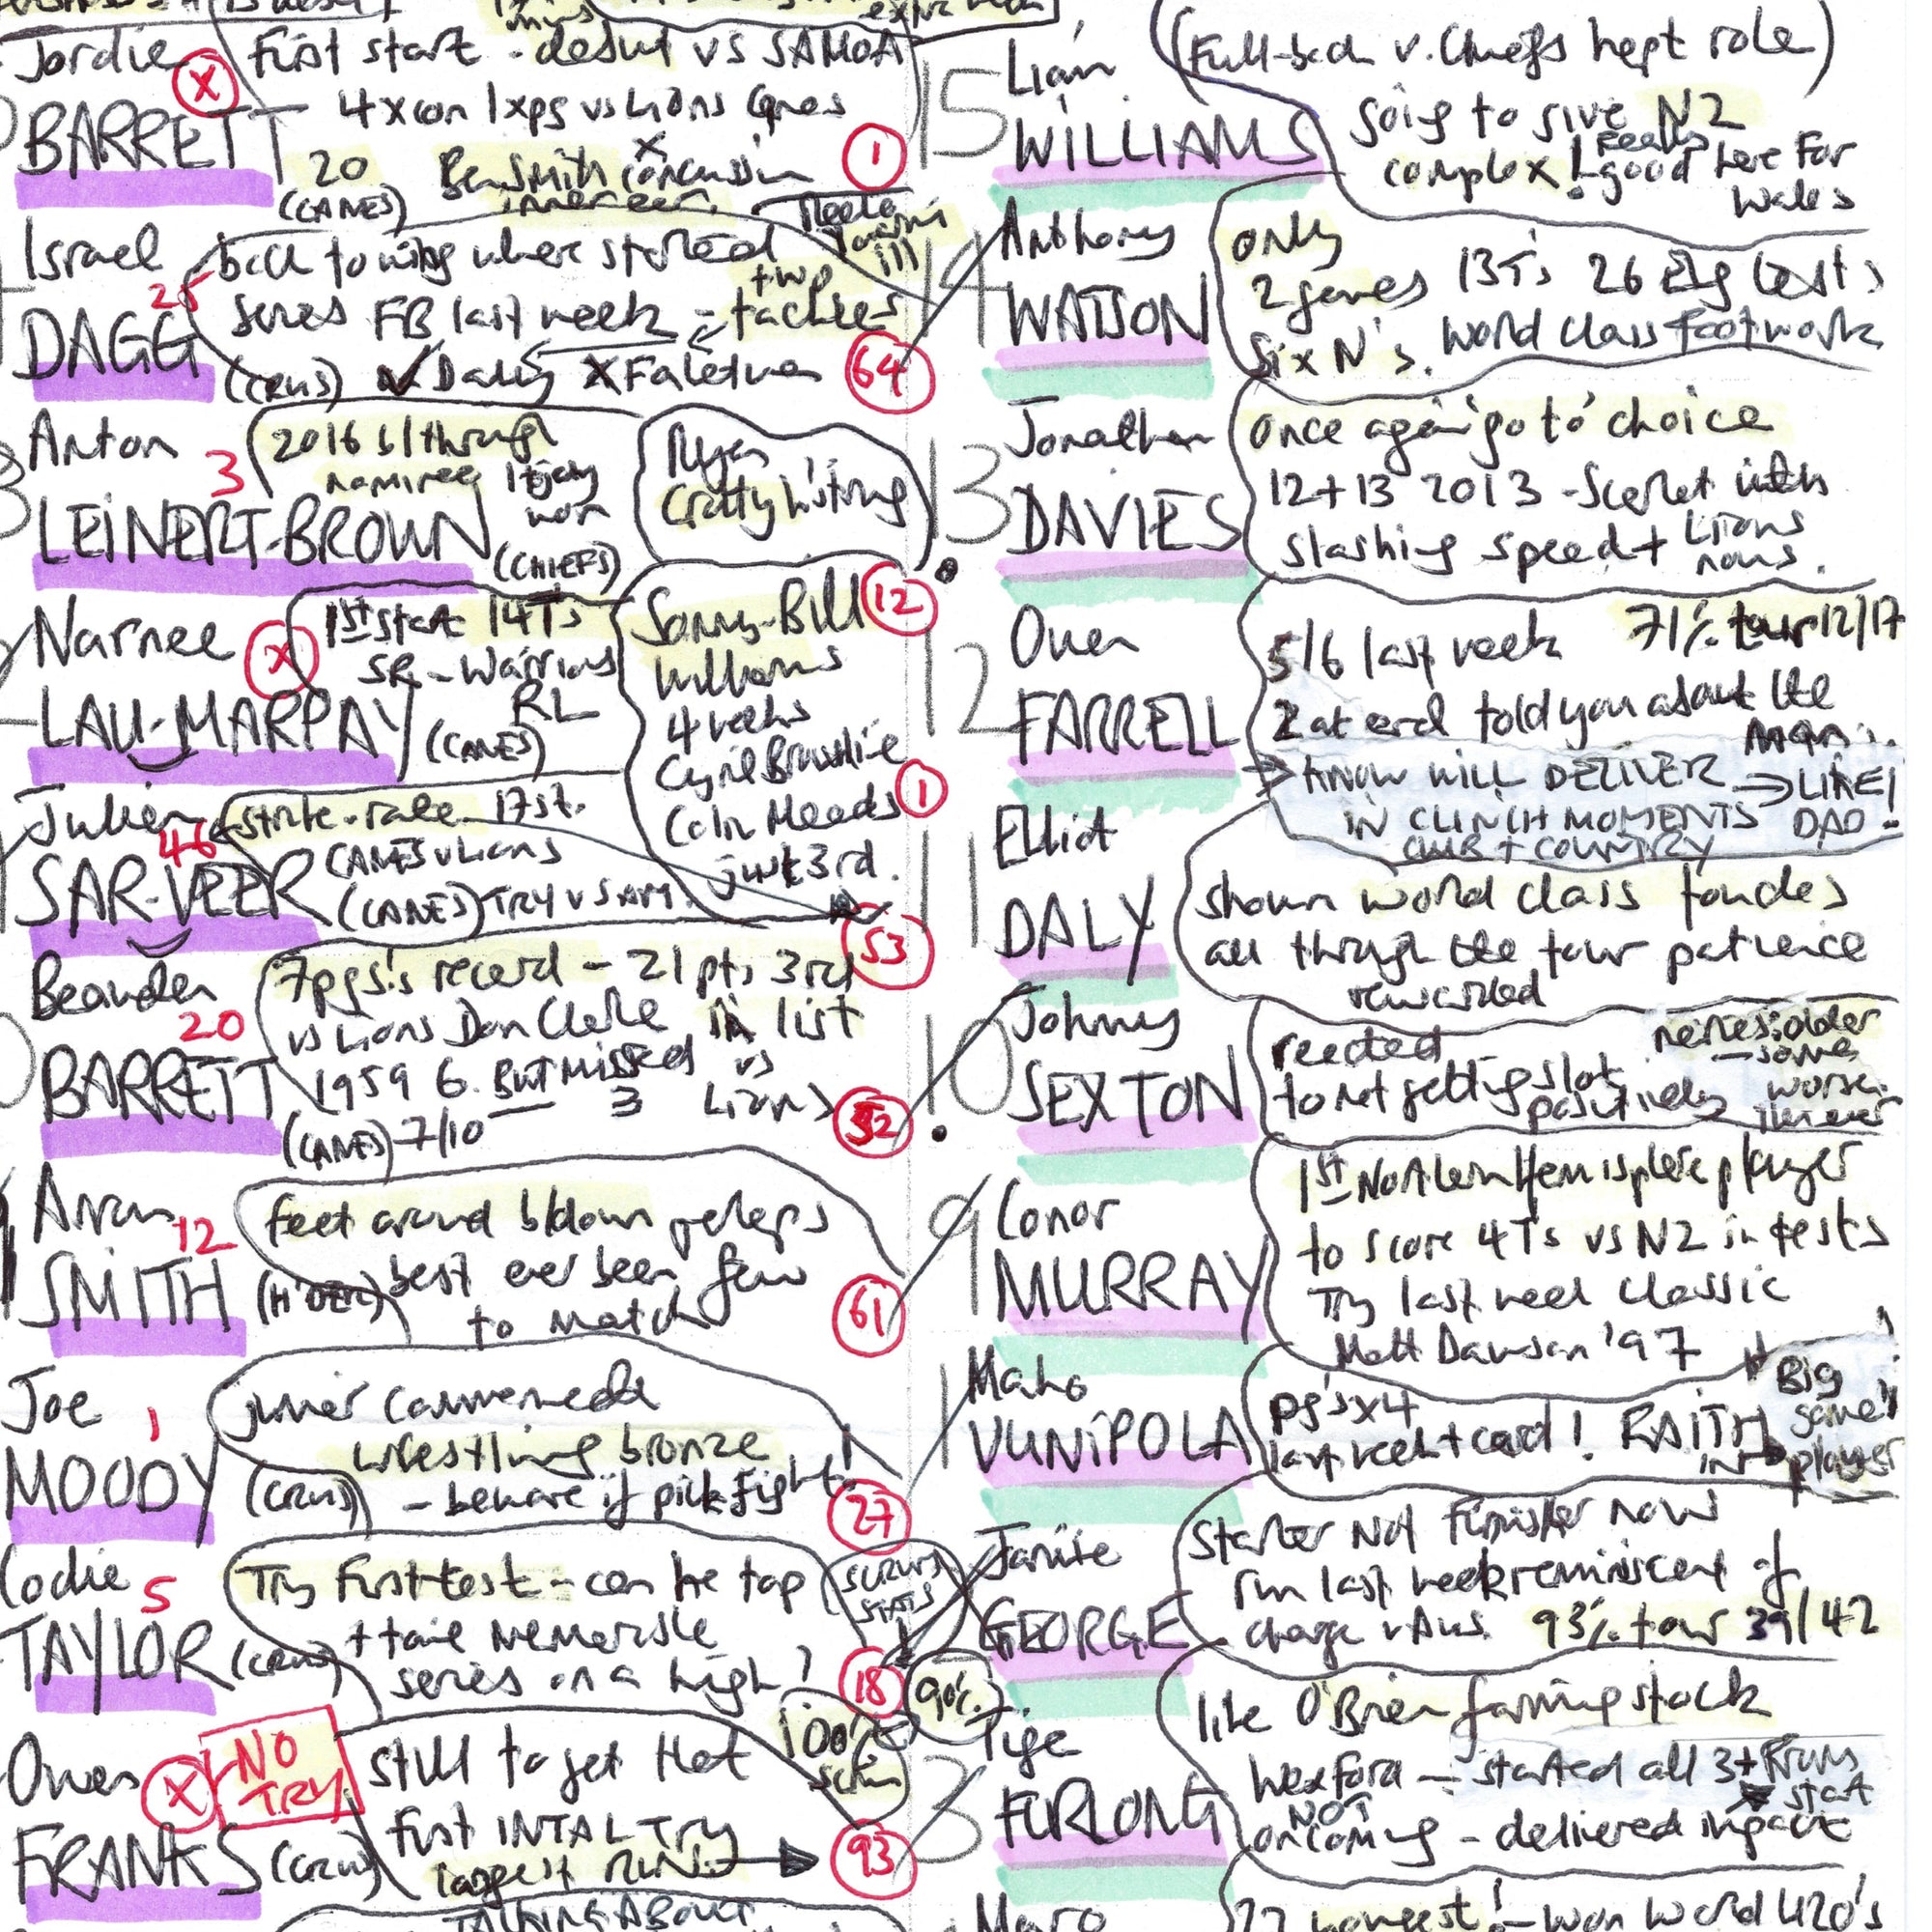 Jordie
X
BARRETT
First start - debut vs SAMOA
4 x con 1 x pg vs Lions Canes
20
(CANES)
Ben Smith concussion
inner ear
1
Israel
25
DAGG
back to wing where started
series FB last week - two tackles
(CRUS) ✓ Daly X Faletau
64
Anton
3
LEINERT-BROWN
2016 b/through
nominee Itoje
won
(CHIEFS)
Ryan
Crotty h/string
Narnee
X
LAU-MARPAY
1st start 14Ts
SR - Warriors
RL
(CANES)
Sonny-Bill
Williams
4 weeks
Cyril Brownlie
Colin Meads
just 3rd.
12
1
Julien
46
SAR-VEER
strike-rate 17st.
CANES v Lions
(CANES) TRY v SAM.
53
Beauden
20
BARRETT
7pgs's record - 21 pts 3rd
vs Lions Don Clarke in list
1959 6. But missed vs
3 Lions
(CANES) 7/10
52
Aaron
12
SMITH
feet around b/down perhaps
best ever been few
to match
61
Joe
1
MOODY
junior
wrestling bronze
(CRUS) - beware if pick fight!
27
Codie
5
TAYLOR
Try first test - can he top
+ tail memorable
series on a high?
(CRUS)
SCRUM
STATS
18
90%
100%
scrum
Owen
X
NO
TRY
FRANKS
still to get that
first INTAL TRY
(CRUS) longest RUN
93
TALKING ABOUT
15
Liam
WILLIAMS
(Full-back v. Chiefs kept role)
going to give NZ
complex! really good here for
Wales
14
Anthony
WATSON
only
2 games
Six N's.
13Ts 26 Eng tests
world class footwork
13
Jonathan
DAVIES
once again 'go to' choice
12 + 13 2013 - Scarlet with
slashing speed + Lions
nous.
12
Owen
FARRELL
5/6 last week 71% tour 12/17
2 at end told you about the
man.
KNOW WILL DELIVER → LIKE
IN CLINCH MOMENTS DAD!
CLUB + COUNTRY
11
Elliot
DALY
shown world class touches
all through the tour patience
rewarded
10
Johnny
SEXTON
reacted
to not getting slot
positively
9
Conor
MURRAY
1st Northern Hemisphere player
to score 4Ts vs NZ in tests
Try last week classic
Matt Dawson '97
1
Mako
VUNIPOLA
pg's x 4
last week + card! FAITH
IN
Big
game
player
Jamie
GEORGE
Starter Not Finisher now
run last week reminiscent of
charge v Aus. 93% tour 39/42
3
Tige
FURLONG
like O'Brien farming stock
Wexford - started all 3
NOT
oncoming - delivered impact
Maro
22 won World U20's